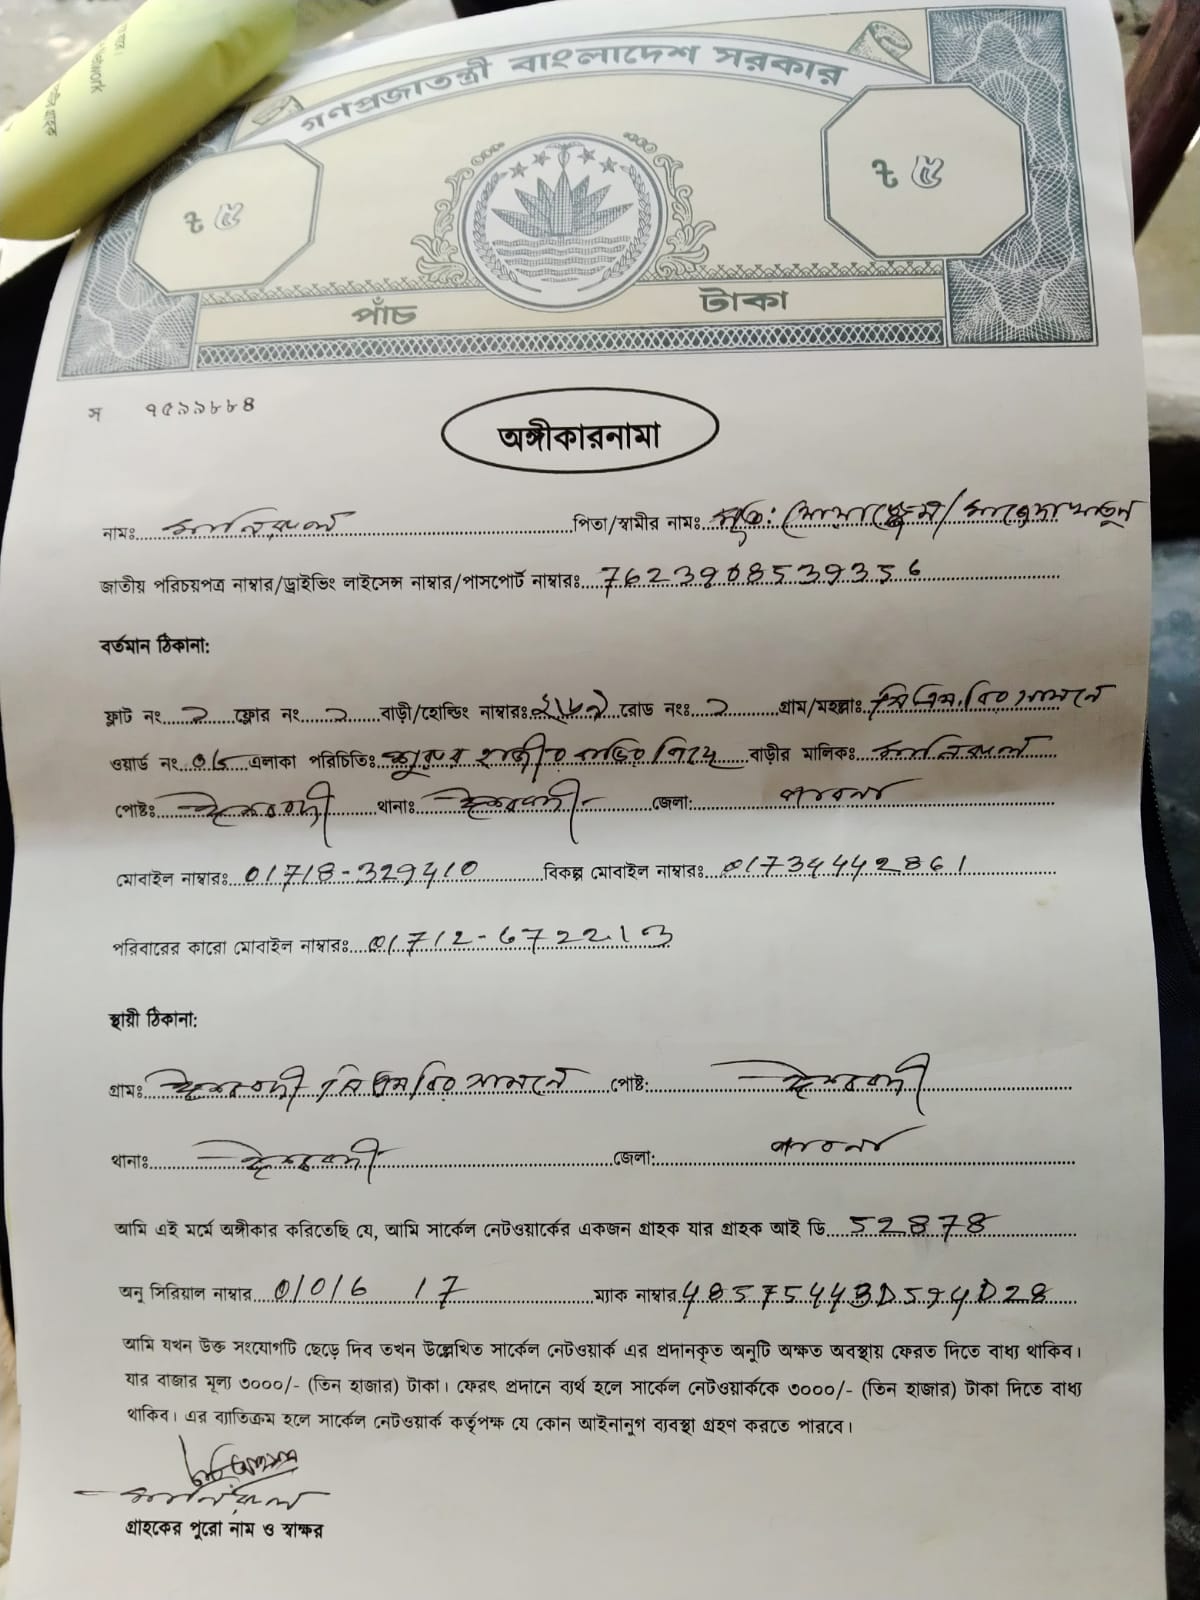 Network
গণপ্রজাতন্ত্রী বাংলাদেশ সরকার
৳ ৫ ৳ ৫
পাঁচ টাকা
স ৭৫৯৯৮৮৪
অঙ্গীকারনামা
নামঃ মনিরুল পিতা/স্বামীর নামঃ মৃত:
জাতীয় পরিচয়পত্র নাম্বার/ড্রাইভিং লাইসেন্স নাম্বার/পাসপোর্ট নাম্বারঃ 7623908539356
বর্তমান ঠিকানা:
ফ্লাট নং ২ ফ্লোর নং ২ বাড়ী/হোল্ডিং নাম্বারঃ রোড নংঃ ২ গ্রাম/মহল্লাঃ সামনে
ওয়ার্ড নং 05 এলাকা পরিচিতিঃ হাজীর বাড়ির বাড়ীর মালিকঃ মনিরুল
পোষ্টঃ ঈশ্বরদী থানাঃ ঈশ্বরদী জেলা: পাবনা
মোবাইল নাম্বারঃ 01718-329410 বিকল্প মোবাইল নাম্বারঃ 01734442861
পরিবারের কারো মোবাইল নাম্বারঃ 01712-672213
স্থায়ী ঠিকানা:
গ্রামঃ ঈশ্বরদী সামনে পোষ্ট: ঈশ্বরদী
থানাঃ ঈশ্বরদী জেলা: পাবনা
আমি এই মর্মে অঙ্গীকার করিতেছি যে, আমি সার্কেল নেটওয়ার্কের একজন গ্রাহক যার গ্রাহক আই ডি 52878
অনু সিরিয়াল নাম্বার 01016 17 ম্যাক নাম্বার 48575443D594D28
আমি যখন উক্ত সংযোগটি ছেড়ে দিব তখন উল্লেখিত সার্কেল নেটওয়ার্ক এর প্রদানকৃত অনুটি অক্ষত অবস্থায় ফেরত দিতে বাধ্য থাকিব।
যার বাজার মূল্য ৩০০০/- (তিন হাজার) টাকা। ফেরৎ প্রদানে ব্যর্থ হলে সার্কেল নেটওয়ার্ককে ৩০০০/- (তিন হাজার) টাকা দিতে বাধ্য
থাকিব। এর ব্যাতিক্রম হলে সার্কেল নেটওয়ার্ক কর্তৃপক্ষ যে কোন আইনানুগ ব্যবস্থা গ্রহণ করতে পারবে।
মনিরুল
গ্রাহকের পুরো নাম ও স্বাক্ষর